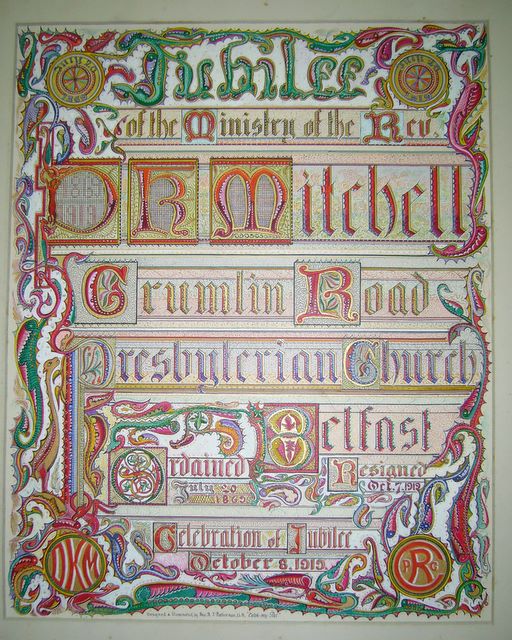 Jubilee
of the Ministry of the Rev.
D K Mitchell
Crumlin Road
Presbyterian Church
Belfast
Ordained
July 20
1865
Resigned
Oct. 7, 1913
Celebration of Jubilee
October 8, 1915.
DKM
PRC
Designed & Illuminated by Rev.